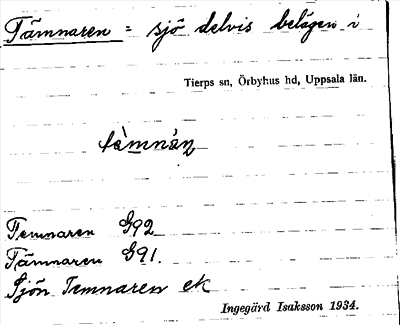 Tämnaren = sjö delvis belägen i
Tierps sn, Örbyhus hd, Uppsala län.
tä̀mnàṇ
Temnaren G92
Tämnaren G91.
Sjön Temnaren ek
Ingegärd Isaksson 1934.